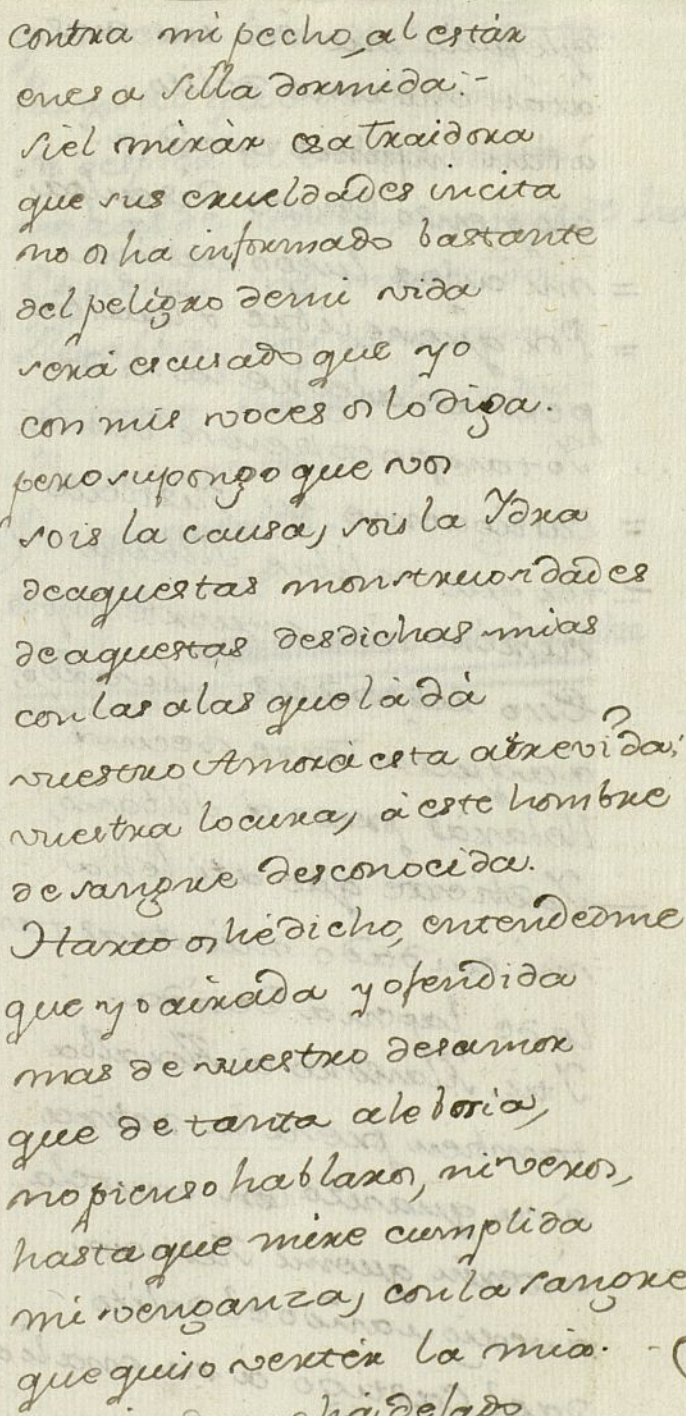 contra mi pecho, al estàr
enesa silla dormida:-
sièl miràr esa traidora
que sus crueldades incita
no os ha informado bastante
del peligro demi vida
serà escusado que yo
con mis voces os lo diga.
pero supongo que vos
sois la causa, sois la Ydra
deaquestas monstruosidades
deaquestas desdichas mias
con las alas que là dà
vuestro Amor à esta atrevida,
vuestra locura, à este hombre
de sangre desconocida.
Harto os hè dicho, entendedme
que yo airada y ofendida
mas de vuestro desamor
que de tanta alebosia,
no pienso hablaros, ni veros,
hasta que mire cumplida
mi venganza, con la sangre
que quiso vertèr la mia.
hà delado